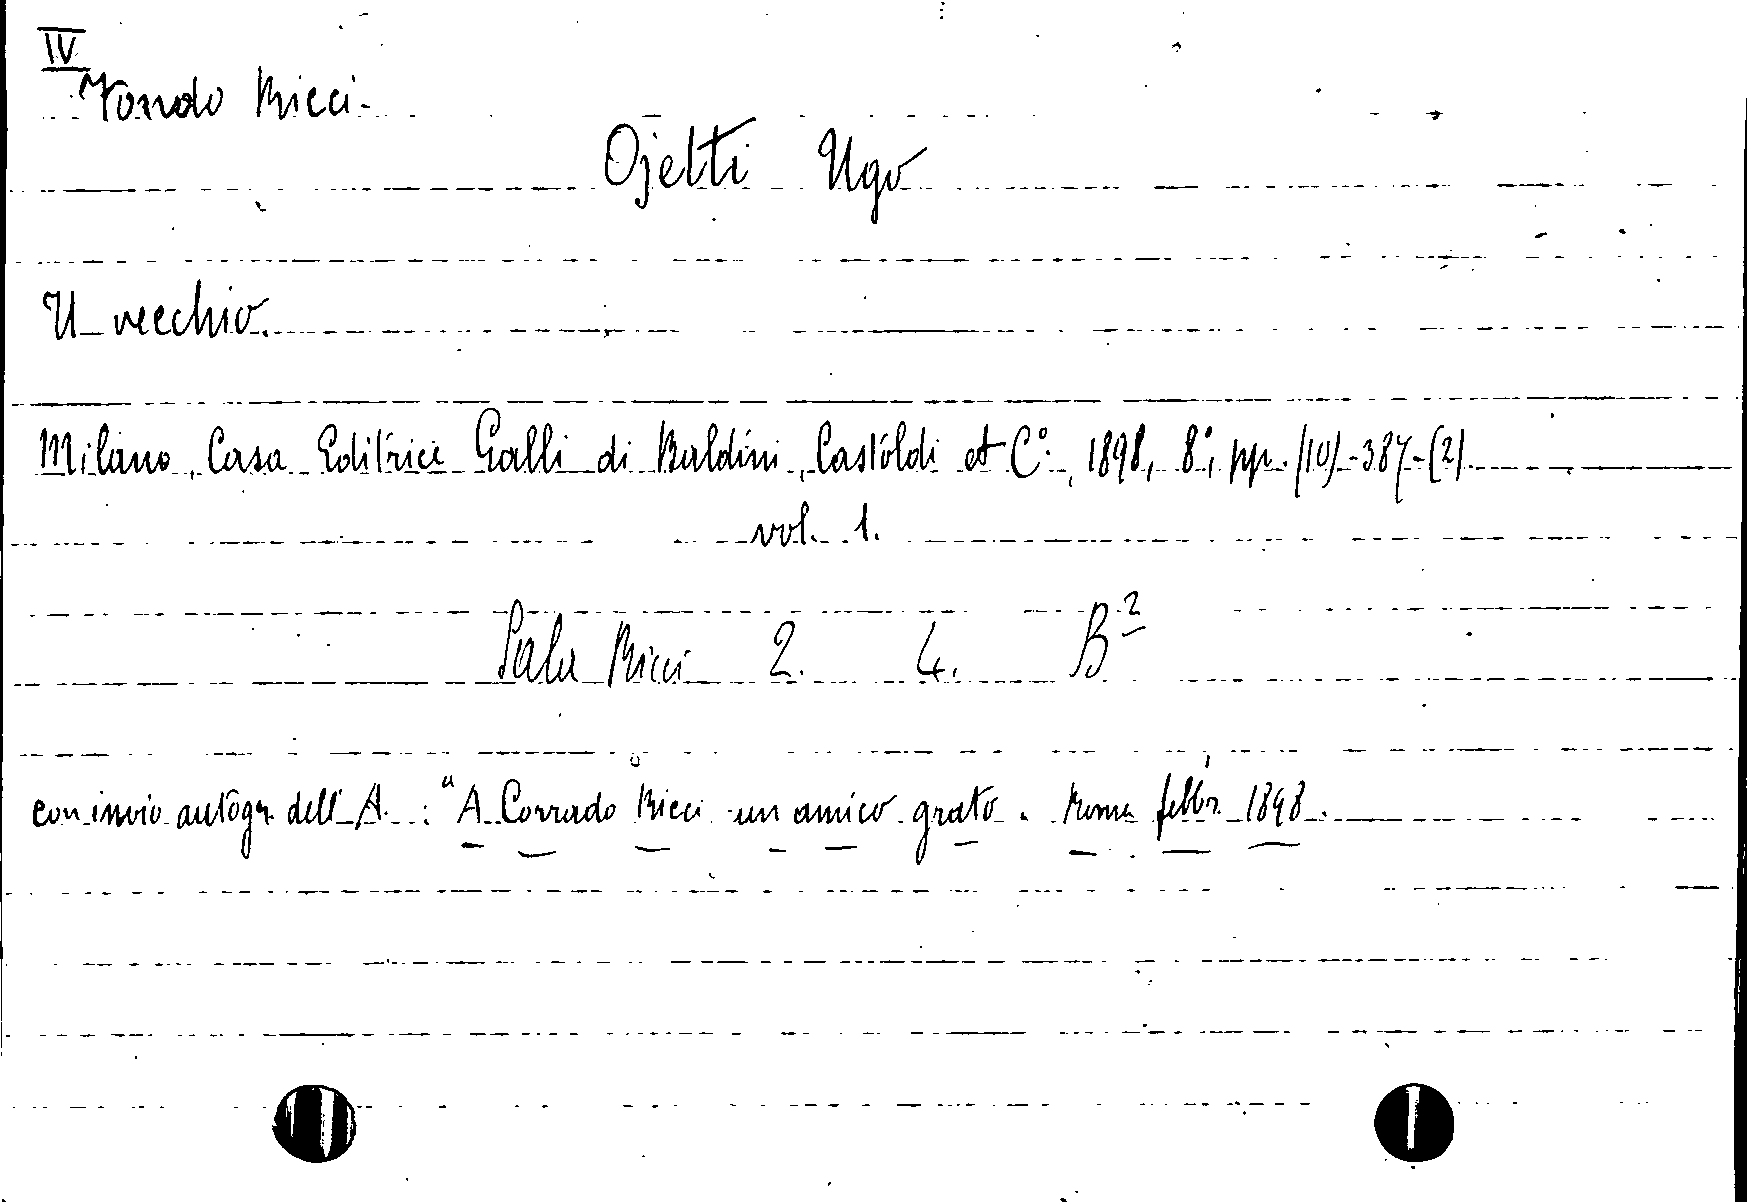 IV
Fondo Ricci.
Ojetti Ugo
Il vecchio.
Milano, Casa Editrice Galli di Baldini, Castoldi et C°., 1898, 8°, pp. (10)-387-(2)
vol. 1.
Sala Ricci 2. 4. B²
con invio autogr. dell'A.: "A Corrado Ricci un amico grato. Roma febbr. 1898.